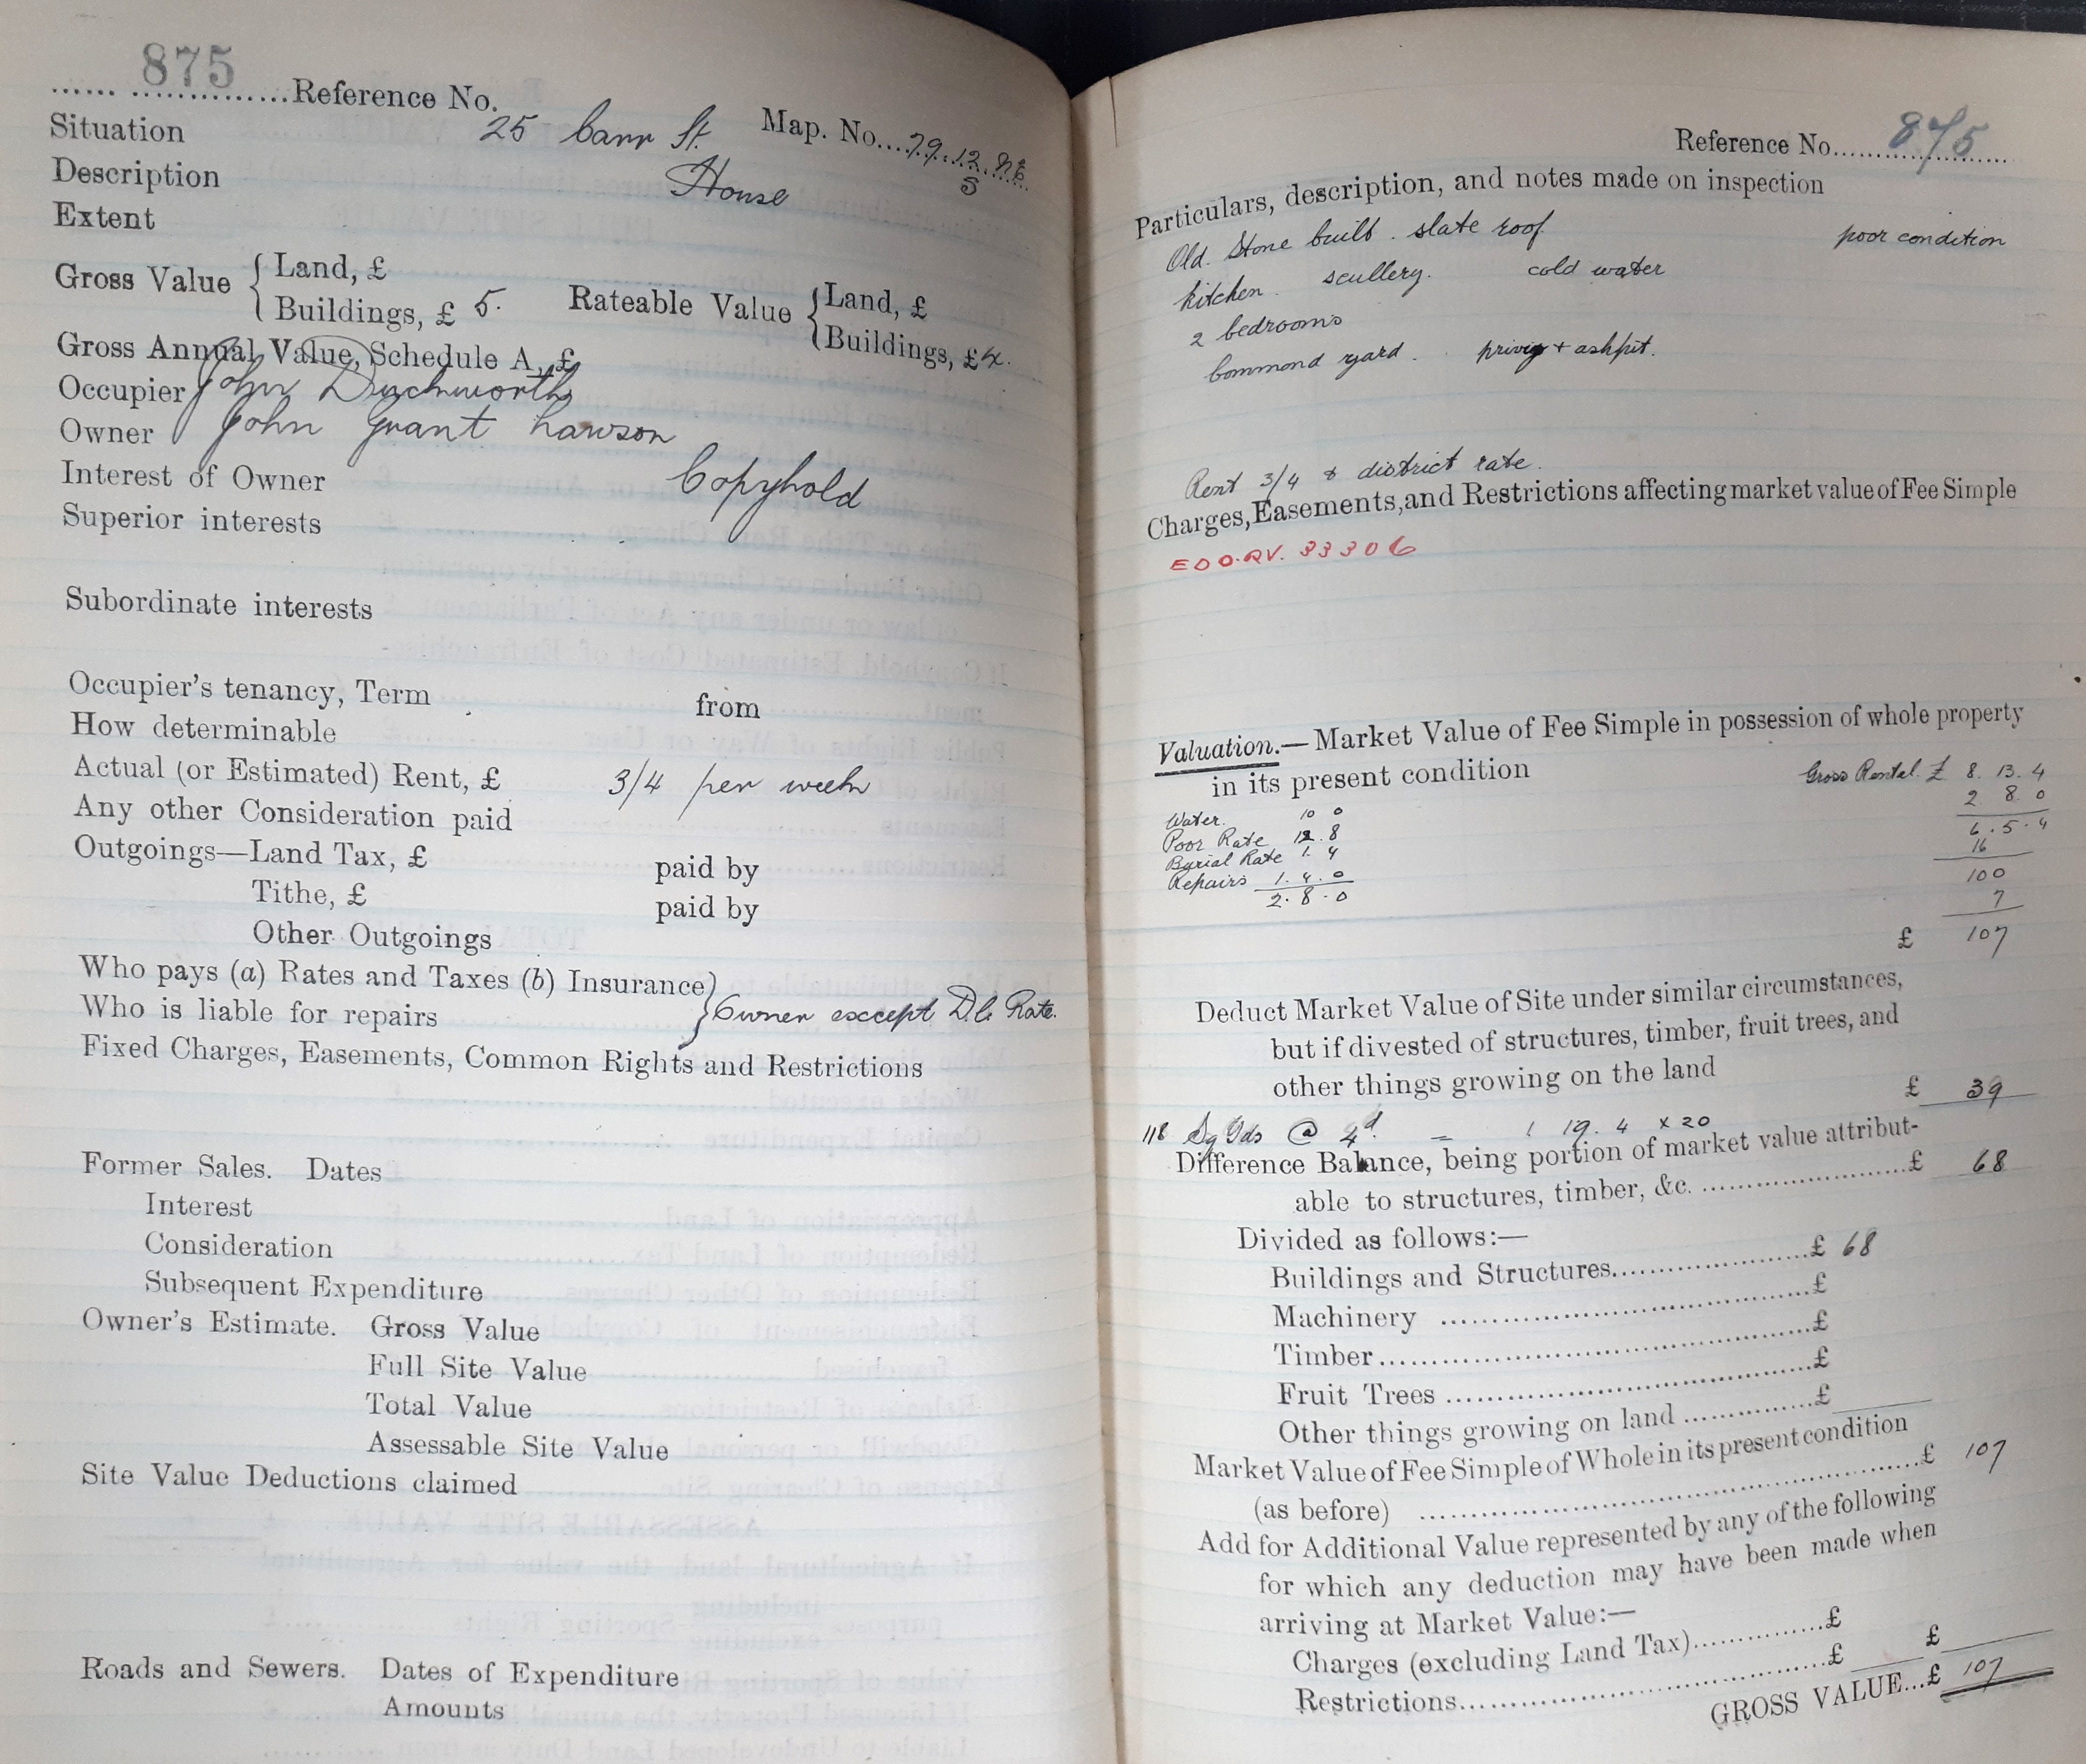 875
...... ..............Reference No.
Situation 25 Carr St. Map. No....79.12.NE
S
Description House
Extent
Gross Value { Land, £
Buildings, £ 5.
Rateable Value { Land, £
Buildings, £ 4.
Gross Annual Value, Schedule A, £
Occupier John Duckworth
Owner John Grant Lawson
Interest of Owner Copyhold
Superior interests
Subordinate interests
Occupier's tenancy, Term from
How determinable
Actual (or Estimated) Rent, £ 3/4 per week
Any other Consideration paid
Outgoings—Land Tax, £ paid by
Tithe, £ paid by
Other Outgoings
Who pays (a) Rates and Taxes (b) Insurance
Who is liable for repairs } Owner except D.C. Rate.
Fixed Charges, Easements, Common Rights and Restrictions
Former Sales. Dates
Interest
Consideration
Subsequent Expenditure
Owner's Estimate. Gross Value
Full Site Value
Total Value
Assessable Site Value
Site Value Deductions claimed
Roads and Sewers. Dates of Expenditure
Amounts
Reference No. 875
Particulars, description, and notes made on inspection
Old. Stone built. slate roof poor condition
kitchen scullery. cold water
2 bedrooms
Commond yard. privy + ashpit.
Rent 3/4 & district rate.
Charges, Easements, and Restrictions affecting market value of Fee Simple
EDO.RV. 33306
Valuation.—Market Value of Fee Simple in possession of whole property
in its present condition Gross Rental. £ 8. 13. 4
2 8 0
6. 5. 4
16
100
7
£ 107
Water. 10 0
Poor Rate 12. 8
Burial Rate 1. 4
Repairs 1. 4. 0
2. 8. 0
Deduct Market Value of Site under similar circumstances,
but if divested of structures, timber, fruit trees, and
other things growing on the land £ 39
118 Sq Yds @ 4d. = 1 19. 4 x 20
Difference Balance, being portion of market value attribut-
able to structures, timber, &c. ........................£ 68
Divided as follows:—
Buildings and Structures......................£ 68
Machinery ..........................................£
Timber.................................................£
Fruit Trees ..........................................£
Other things growing on land ...............£
Market Value of Fee Simple of Whole in its present condition
(as before) .......................................................£ 107
Add for Additional Value represented by any of the following
for which any deduction may have been made when
arriving at Market Value:—
Charges (excluding Land Tax)...............£
Restrictions..........................................£ £
GROSS VALUE...£ 107